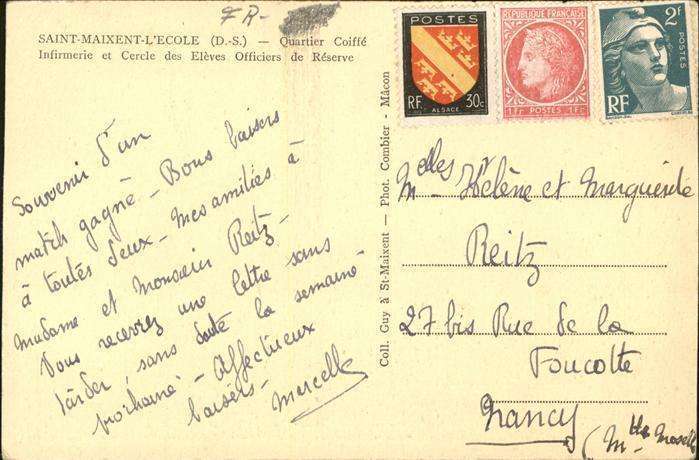 7 R-
SAINT-MAIXENT-L'ECOLE (D.-S.) — Quartier Coiffé
Infirmerie et Cercle des Elèves Officiers de Réserve
Souvenir d'un
match gagné - Bons baisers
à toutes deux - Mes amitiés à
Madame et Monsieur Reitz -
Vous recevrez une lettre sans
tarder, sans doute la semaine
prochaine - Affectueux
baisers - Marcelle
Coll. Guy à St-Maixent — Phot. Combier - Mâcon
POSTES
RF 30c
ALSACE
REPUBLIQUE FRANÇAISE
1F POSTES 1F
2F
POSTES
RF
Melles Hélène et Marguerite
Reitz
27 bis Rue de la
Foucotte
Nancy
(Mthe Moselle